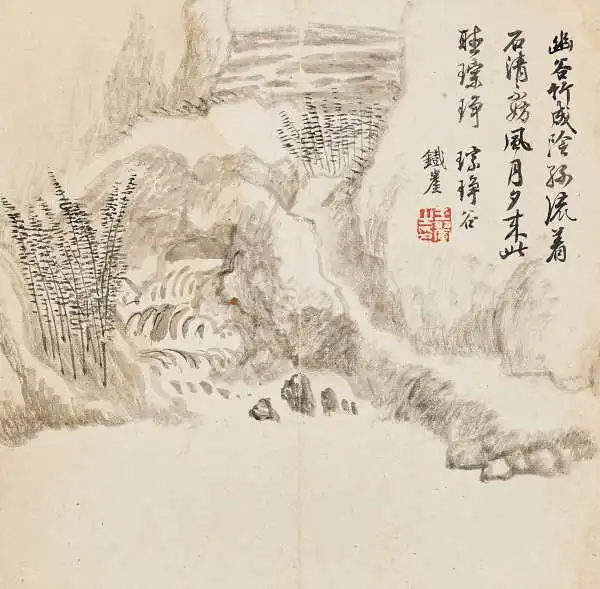 幽谷竹成陰流着
石清不妨風月夕来此
聽琮琤 琮琤谷
鐵崖